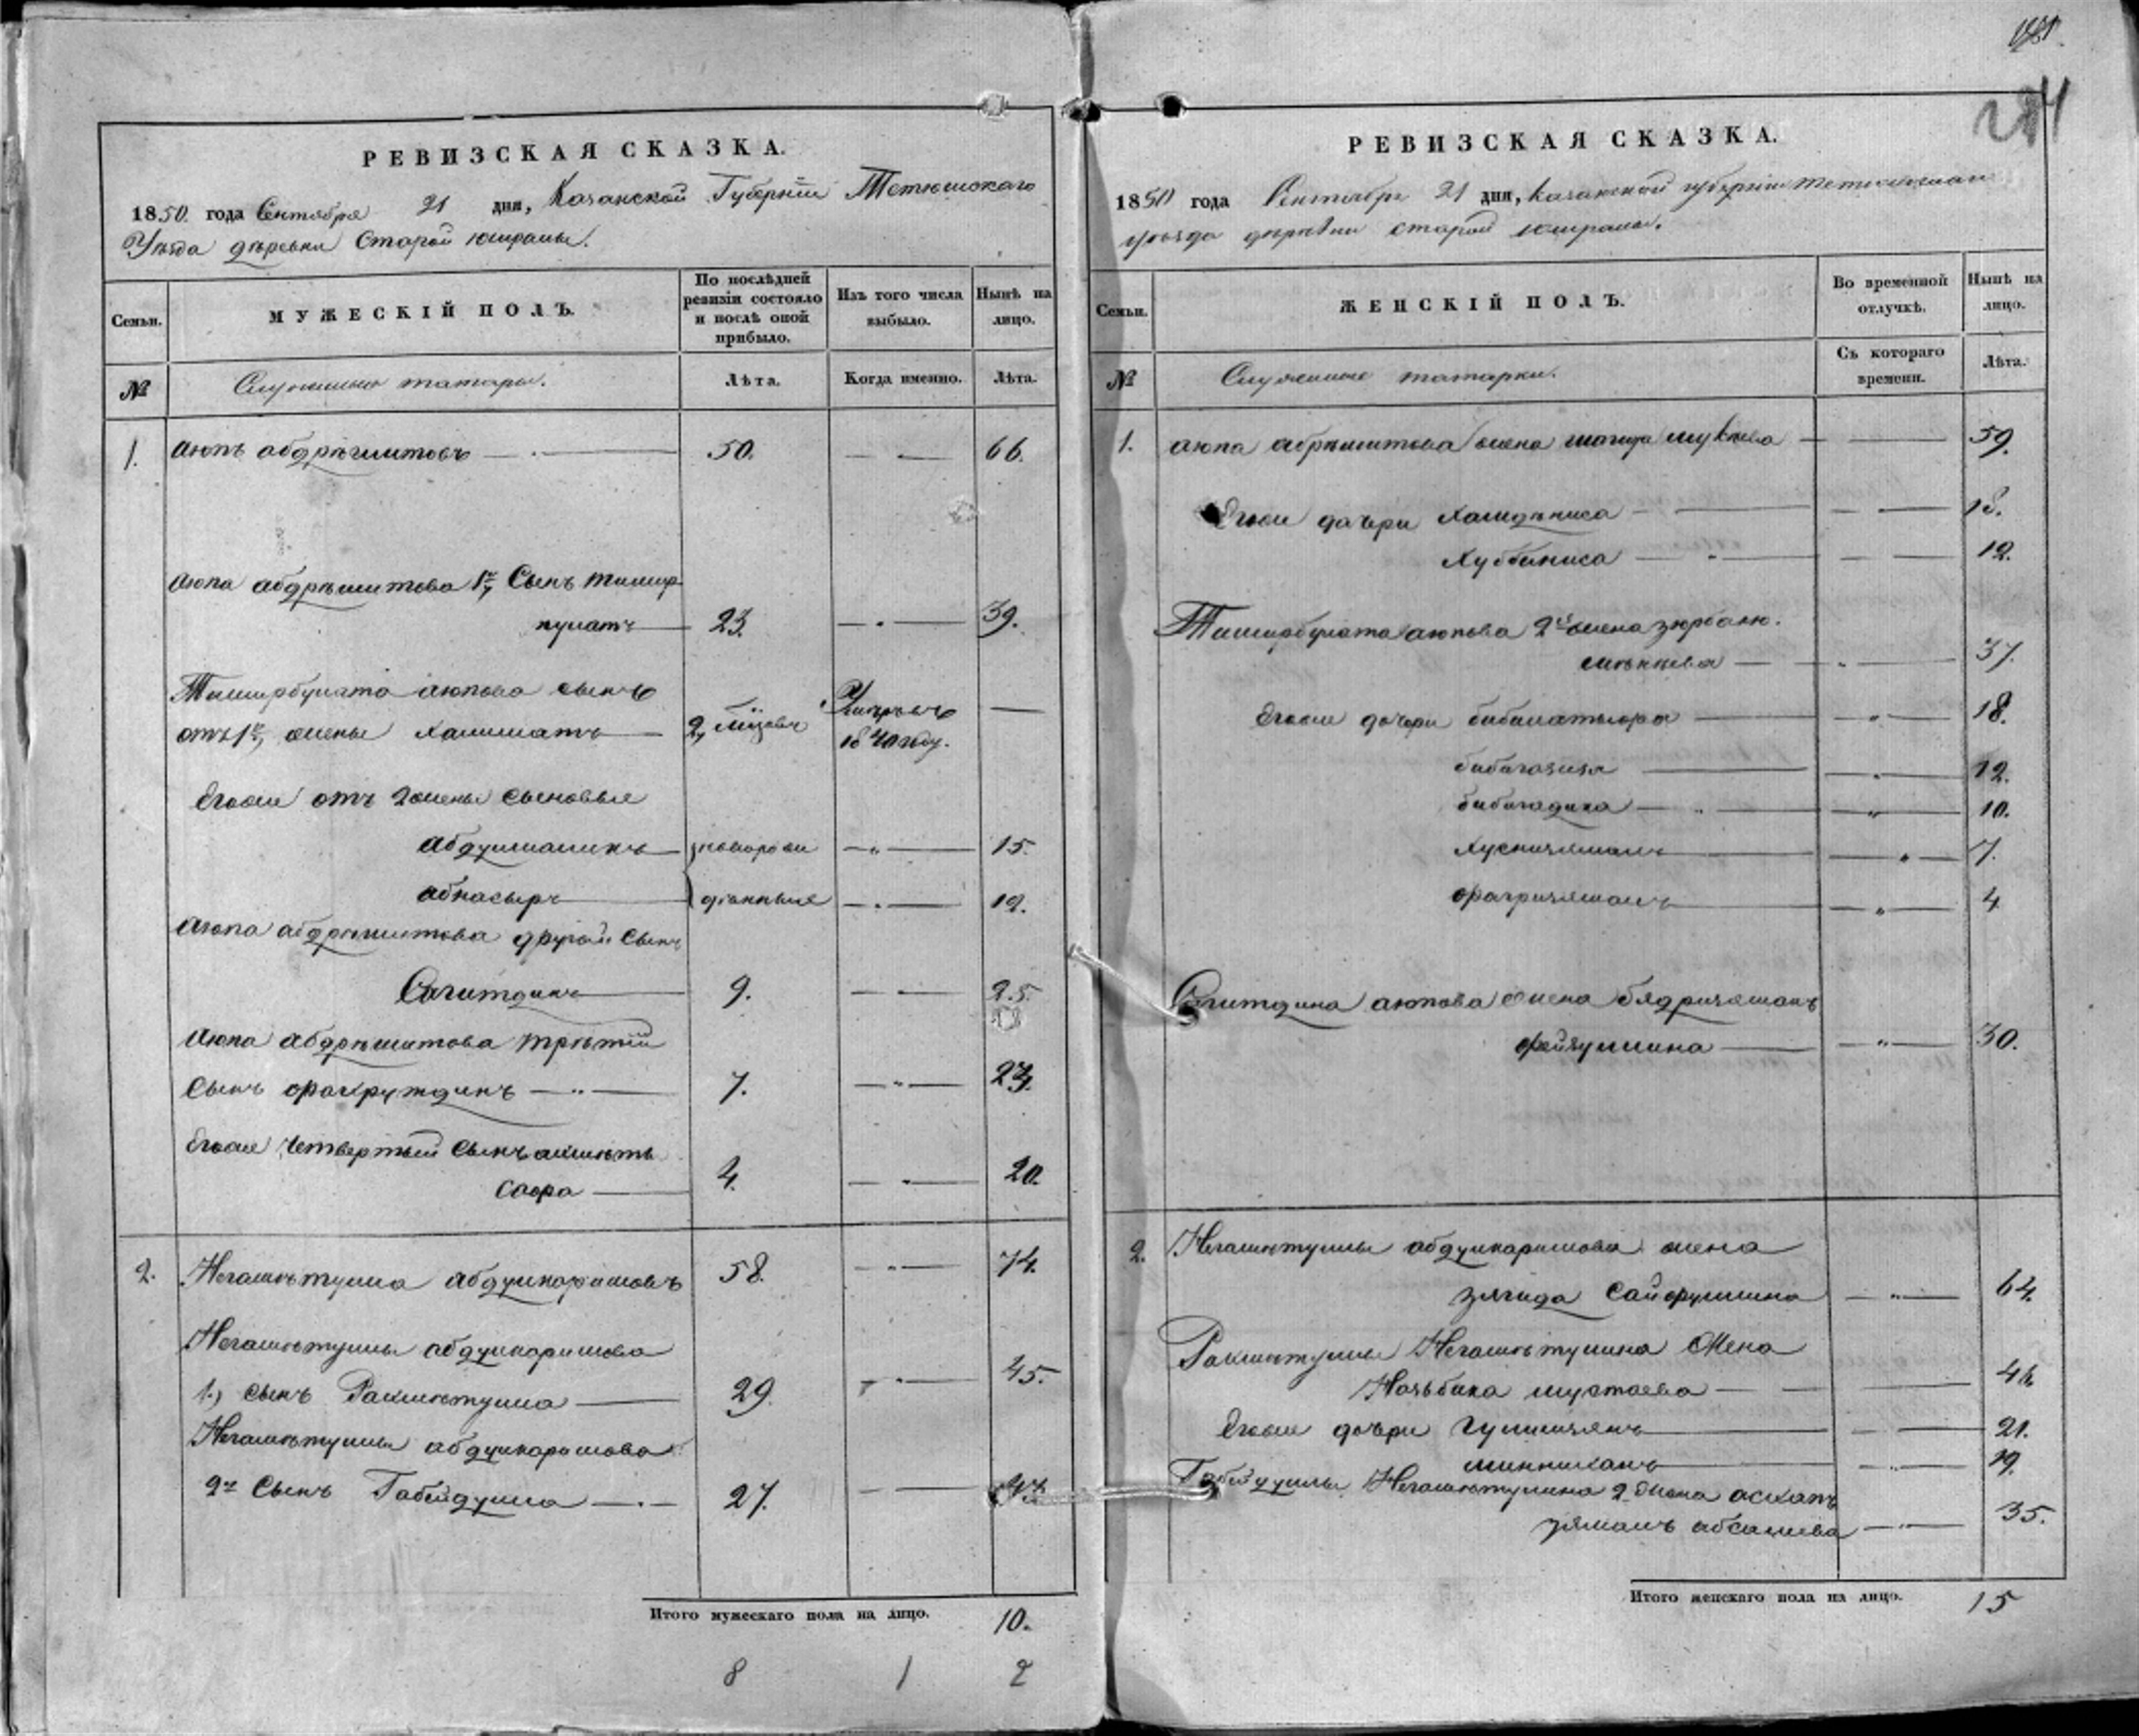 181.
РЕВИЗСКАЯ СКАЗКА.
1850. года Сентября 21 дня, Казанской Губерніи Тетюшскаго
Уѣзда деревни Старой юмралы.
Семьи.
МУЖЕСКІЙ ПОЛЪ.
По послѣдней ревизіи состояло и послѣ оной прибыло.
Изъ того числа выбыло.
Нынѣ на лицо.
№
Служилые татары.
Лѣта.
Когда именно.
Лѣта.
1. аюпъ абдрѣшитовъ 50. 66.
аюпа абдрѣшитова 1й, Сынъ тимир
пулатъ 23. 39.
Тимирбулата аюпова сынъ
отъ 1й, жены Халиматъ 2, мѣсяцъ Умеръ въ 1840 году.
Егоже отъ 2 жены сыновья
абдулманихъ новорож 15.
абнасыръ денные 12.
аюпа абдрѣшитова другой сынъ
Сагитдинъ 9. 25.
аюпа абдрѣшитова третій
сынъ фахрутдинъ 7. 23.
Егоже четвертый сынъ ахметь
сафа 4. 20.
2. Негаметулла абдулкаримовъ 58. 74.
Негаметуллы абдулкаримова
1.) сынъ Рахметулла 29. 45.
Негаметуллы абдулкаримова
2й сынъ Габейдулла 27.
Итого мужескаго пола на лицо. 10.
8 1 2
РЕВИЗСКАЯ СКАЗКА.
1850 года Сентября 21 дня, Казанской губерніи тетюшскаго
уѣзда деревни старой юмралы.
Семьи.
ЖЕНСКІЙ ПОЛЪ.
Во временной отлучкѣ.
Нынѣ на лицо.
№
Служилые татарки.
Съ котораго времени.
Лѣта.
1. аюпа абрѣшитова жена 59.
Егоже дочери Хамдениса 18.
Хуббиниса 12.
Тимирбулата аюпова 2я жена
37.
Егоже дочери 18.
бибигазизя 12.
бибигадика 10.
Хуснизяманъ 7.
фахризяманъ 4
Сагитдина аюпова жена бядризяманъ
фейзуллина 30.
2. Негаметуллы абдулкаримова жена
зягида Сайфуллина 64.
Рахметуллы Негаметулина Жена
муртаева
Егоже дочери 21.
минниханъ 19.
Габейдуллы Негаметулина 2 жена
зяманъ 35.
Итого женскаго пола на лицо. 15